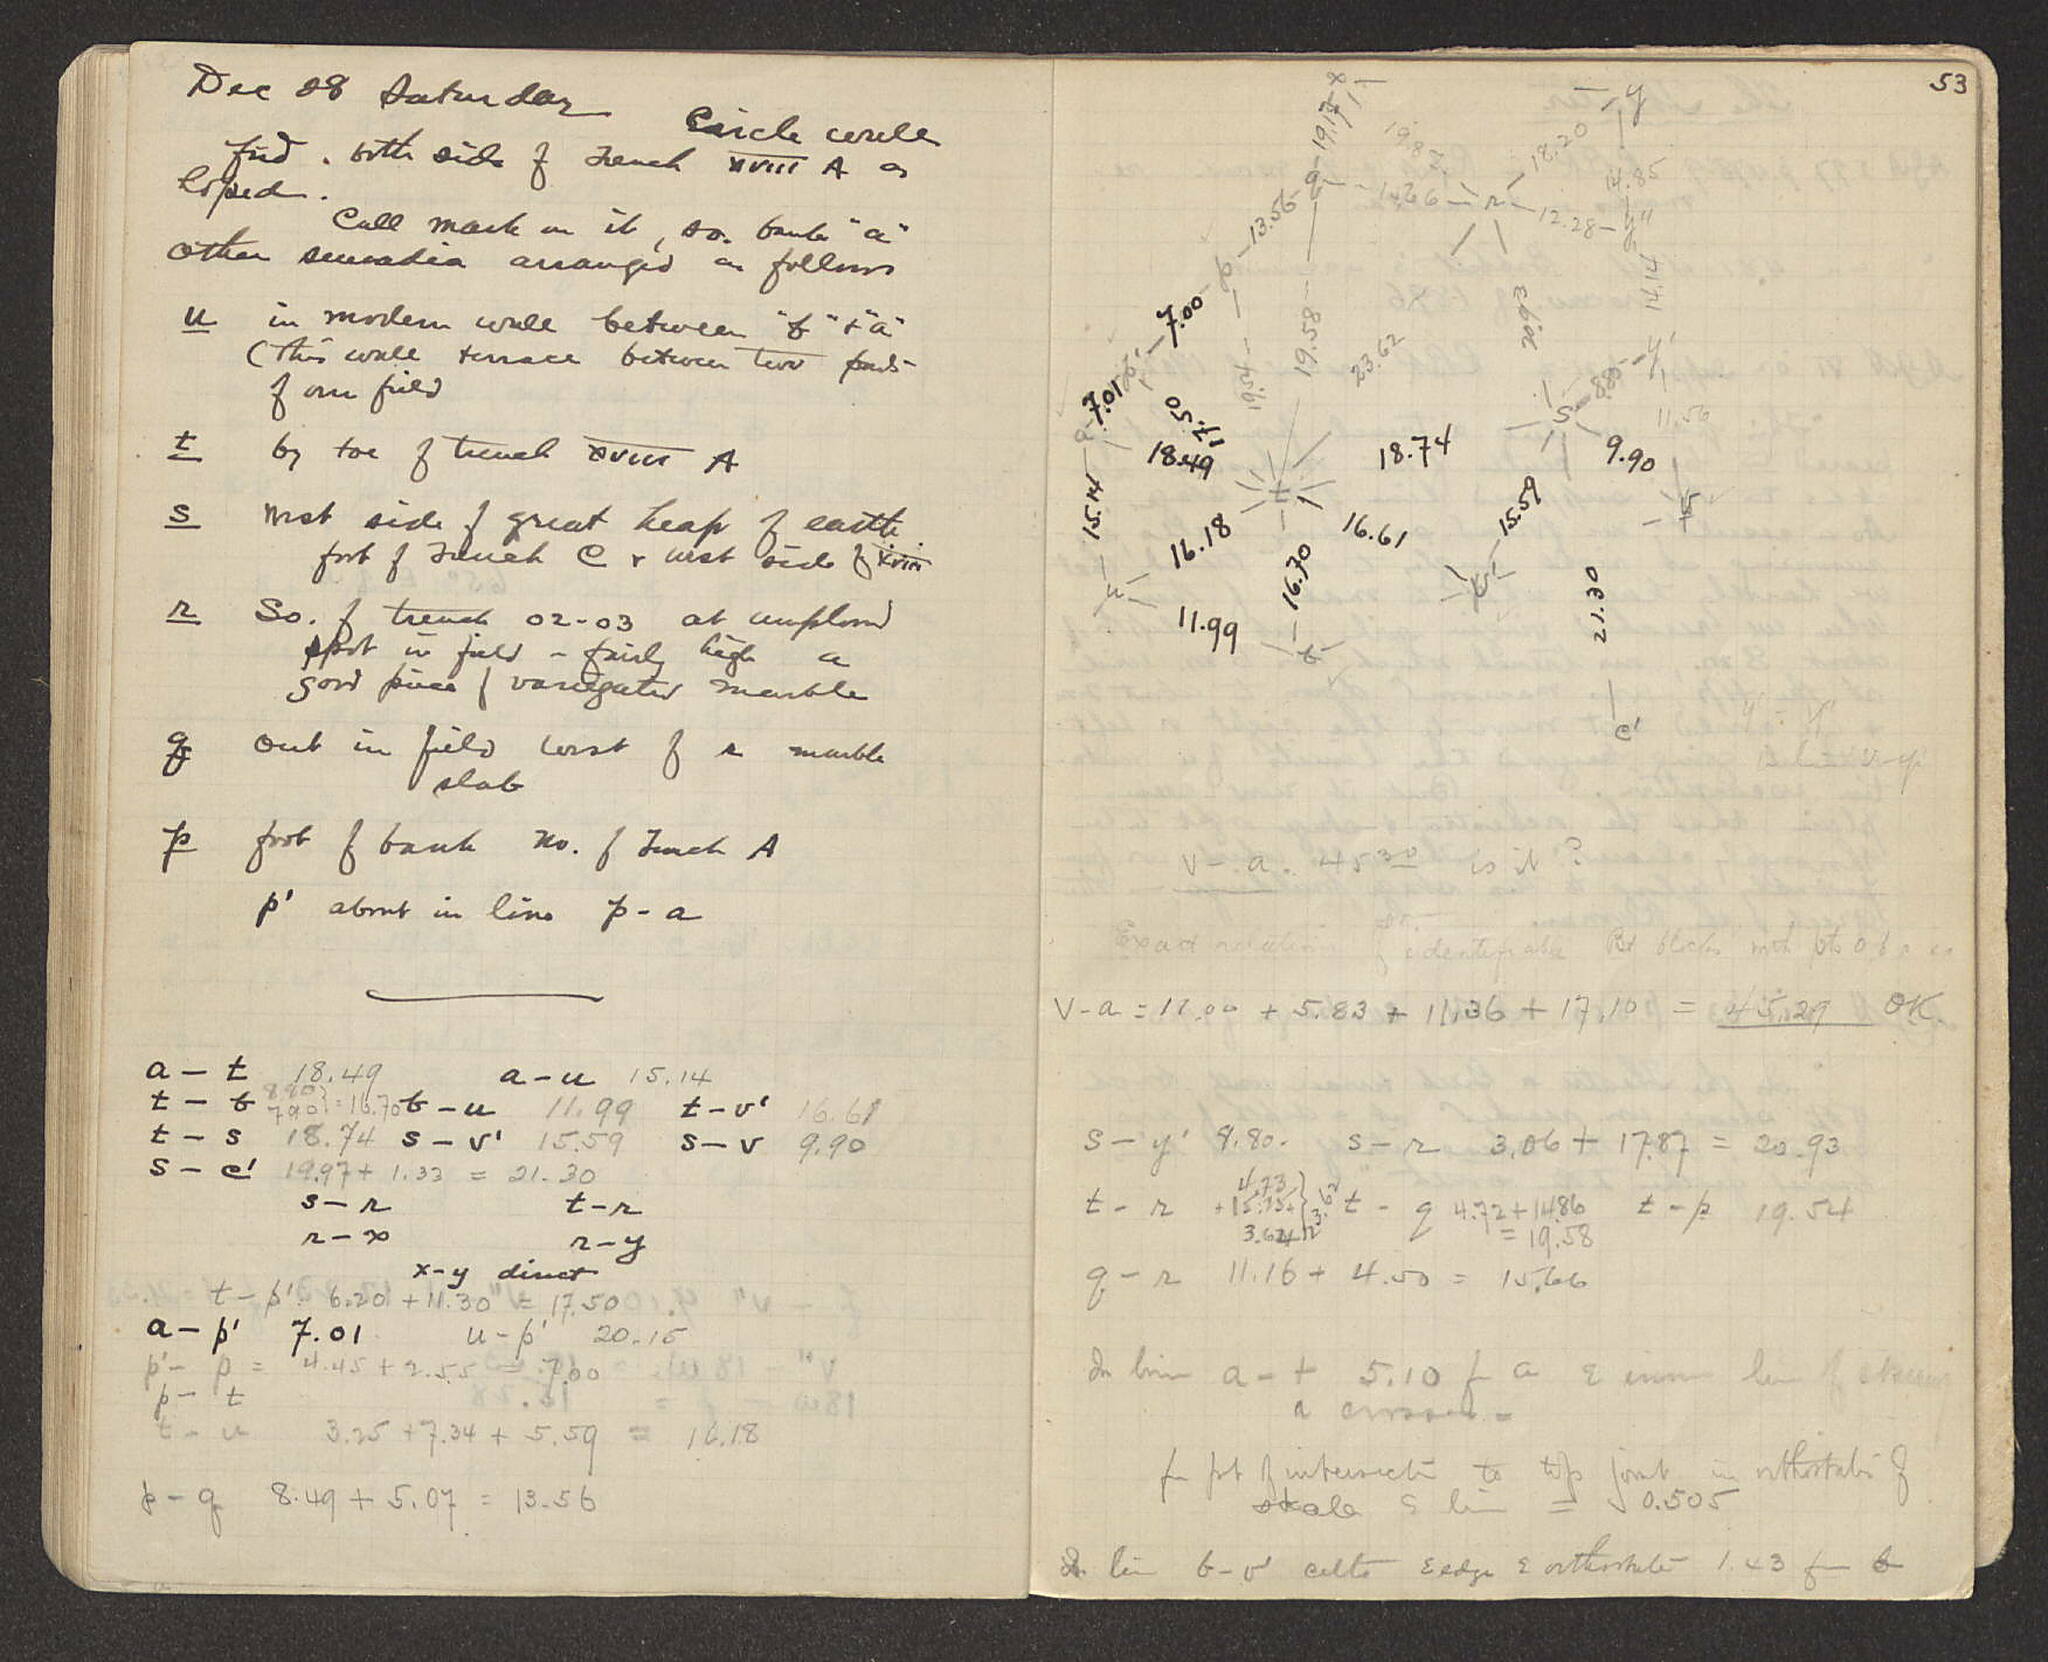 Dec 28 Saturday
Circle wall
find. both side of Trench XVIII A as
hoped.
Call mark on it, so. bank "a"
Other semadia arranged as follows
u in modern wall between "b" + "a"
(this wall terrace between two parts
of our field
t by toe of trench XVIII A
s West side of great heap of earth.
foot of Trench C + west side of XVIII
r So. of trench 02-03 at unplowed
spot in field - fairly high a
good piece of variegated marble
q out in field west of r marble
slab
p foot of bank No. of Trench A
p' about in line p - a
a - t 18.49 a - u 15.14
t - b 8.80 7.90 } = 16.70 b - u 11.99 t - v' 16.61
t - s 18.74 s - v' 15.59 s - v 9.90
s - c' 19.97 + 1.33 = 21.30
s - r t - r
r - x r - y
x - y direct
t - p' 6.20 + 11.30 = 17.50
a - p' 7.01 u - p' 20.15
p' - p = 4.45 + 2.55 = 7.00
p - t
t - u 3.25 + 7.34 + 5.59 = 16.18
p - q 8.49 + 5.07 = 13.56
53
x
y
19.17
19.87
18.20
14.85
q
14.66
r
12.28
y"
13.56
p
14.14
7.00
19.54
19.58
23.62
20.93
y'
p'
8.80
7.01
17.50
s
11.56
a
18.49
18.74
9.90
t
v
15.14
16.18
16.61
15.59
u
16.70
v'
11.99
b
21.30
c'
v - a. 45.30 is it?
Exact relation of identifiable blocks with pts
v - a = 11.00 + 5.83 + 11.36 + 17.10 = 45.29 OK.
s - y' 8.80. s - r 3.06 + 17.87 = 20.93
t - r 4.73 + 15.25 + 3.64 } 23.62 t - q 4.72 + 14.86 = 19.58 t - p 19.54
q - r 11.16 + 4.50 = 15.66
In line a - t 5.10 f a
a crosses =
fr pt of intersect to top joint in orthostates of
line = 0.505
In line b - v' edge orthostate 1.43 fr b